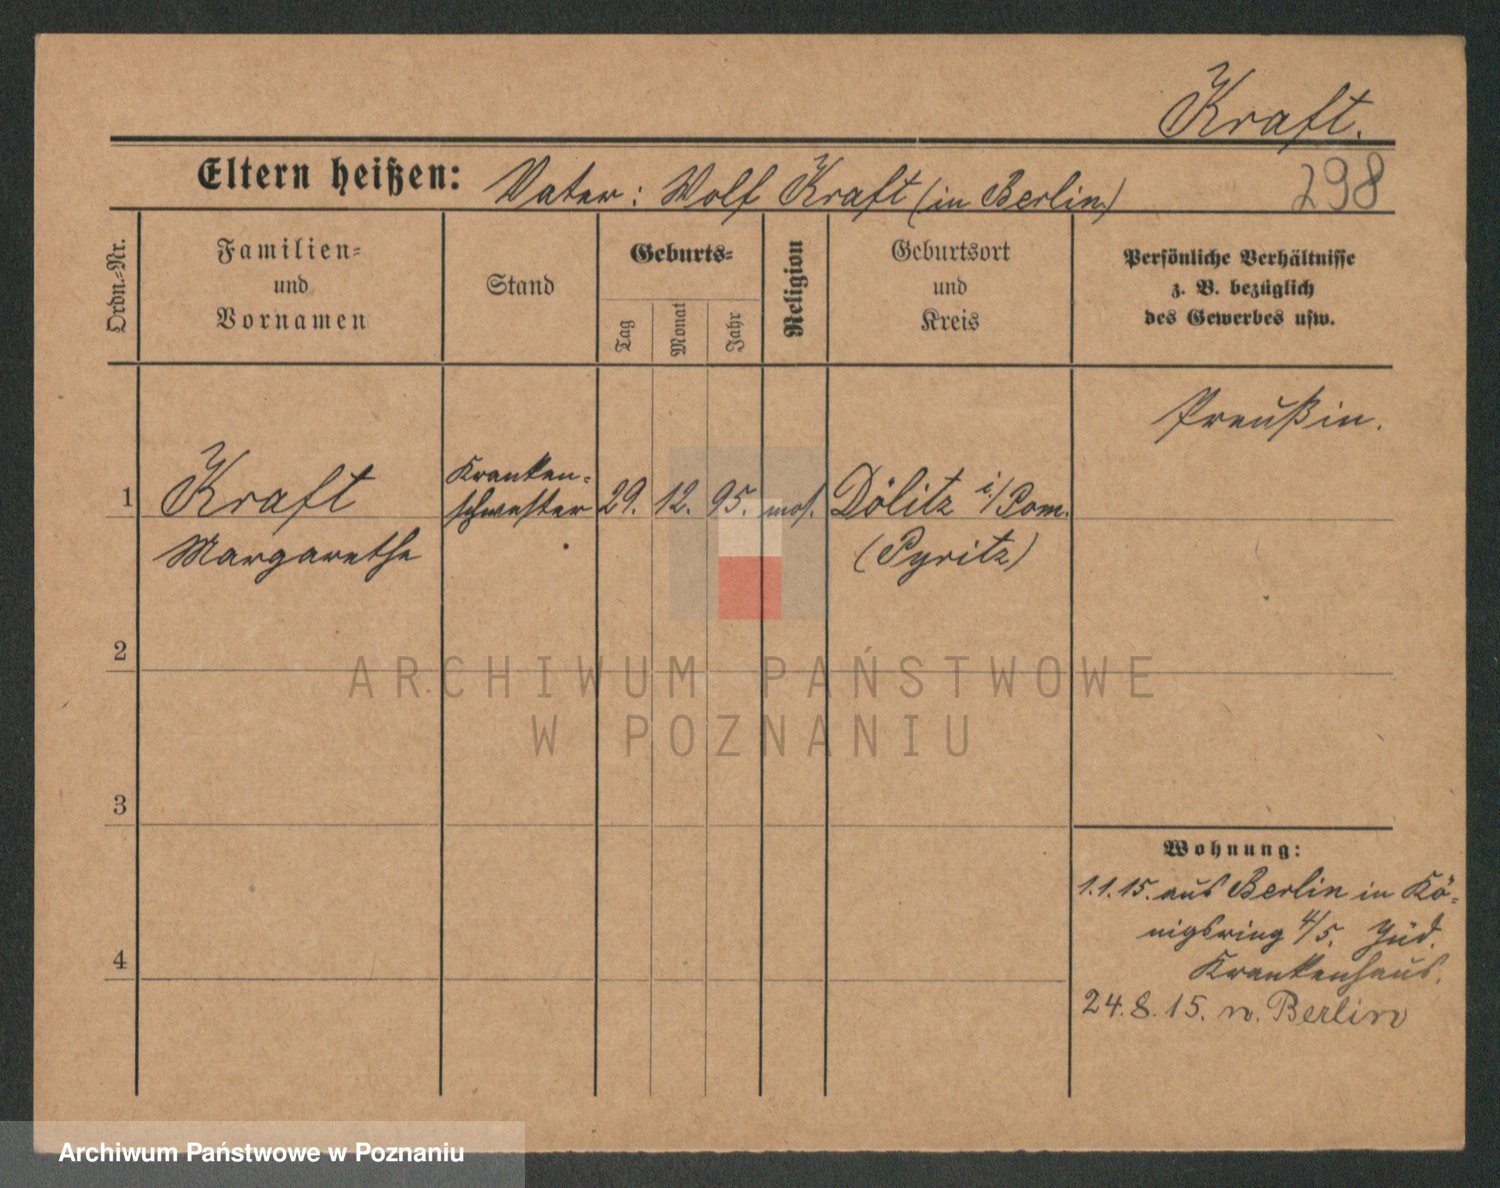 Kraft.
Eltern heißen: Vater: Wolf Kraft (in Berlin)
298
Ordn.-Nr.
Familien-
und
Vornamen
Stand
Geburts-
Tag
Monat
Jahr
Religion
Geburtsort
und
Kreis
Persönliche Verhältnisse
z. B. bezüglich
des Gewerbes usw.
Preußin.
1
Kraft
Margarethe
Kranken-
schwester
29.
12.
95.
mos.
Dölitz i/Pom.
(Pyritz)
2
ARCHIWUM PAŃSTWOWE
W POZNANIU
3
Wohnung:
1.1.15. aus Berlin in Kö-
nigsring 4/5. Jüd.
Krankenhaus.
4
24.8.15. n. Berlin
Archiwum Państwowe w Poznaniu